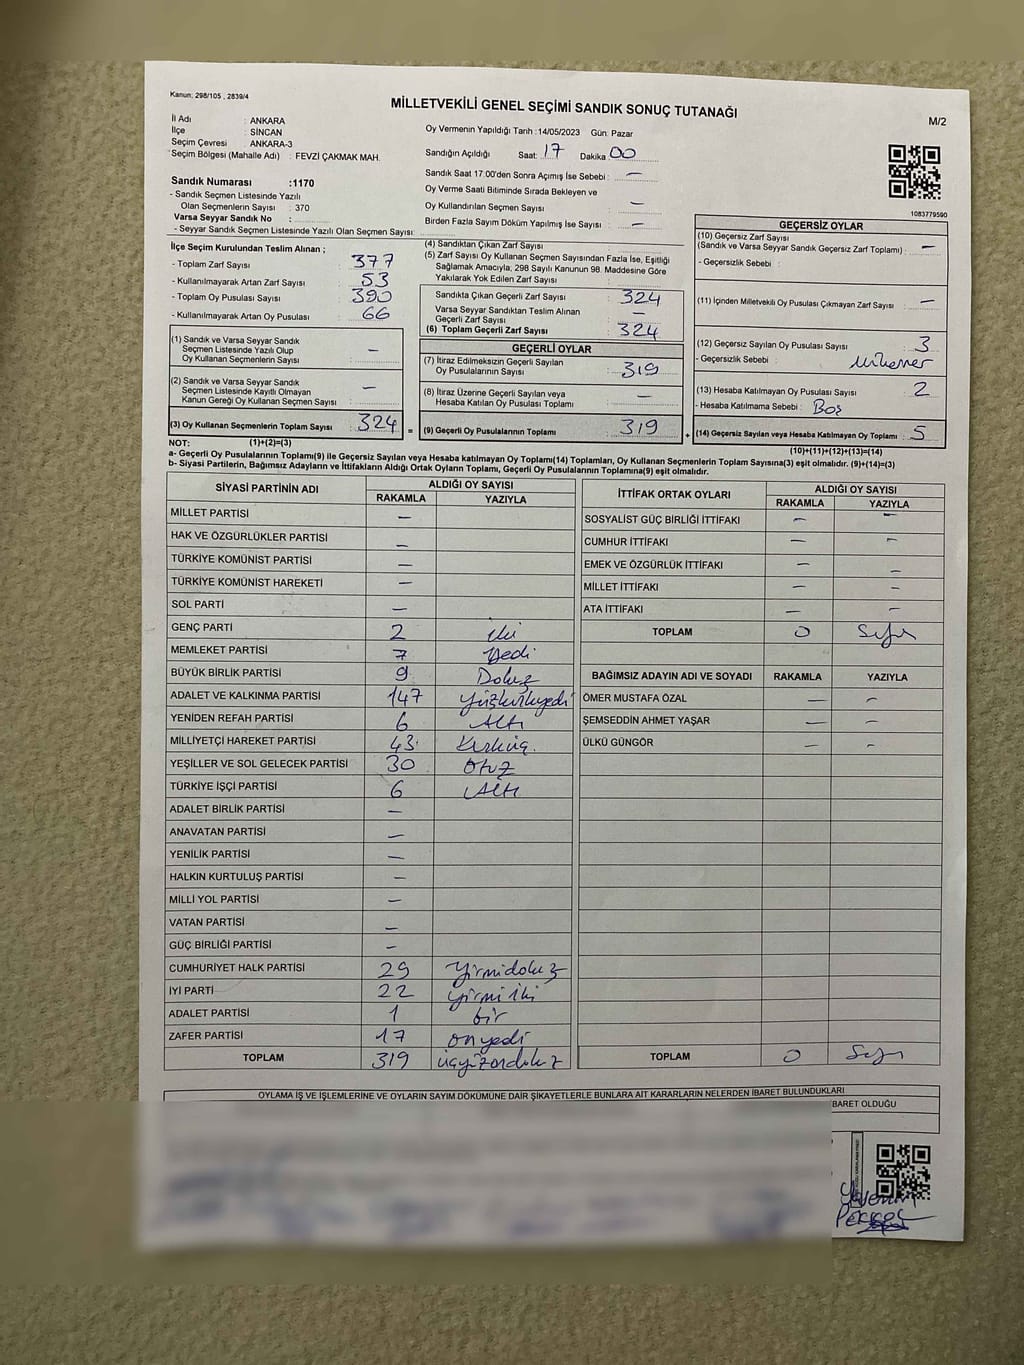 Kanun: 298/105 , 2839/4
MİLLETVEKİLİ GENEL SEÇİMİ SANDIK SONUÇ TUTANAĞI
M/2
İl Adı : ANKARA
İlçe : SİNCAN
Seçim Çevresi : ANKARA-3
Seçim Bölgesi (Mahalle Adı) : FEVZİ ÇAKMAK MAH.
Oy Vermenin Yapıldığı Tarih :14/05/2023 Gün: Pazar
Sandığın Açıldığı Saat: 17 Dakika 00
Sandık Saat 17:00'den Sonra Açımış İse Sebebi : —
Oy Verme Saati Bitiminde Sırada Bekleyen ve
Oy Kullandırılan Seçmen Sayısı : —
Birden Fazla Sayım Döküm Yapılmış İse Sayısı : —
Sandık Numarası :1170
- Sandık Seçmen Listesinde Yazılı
Olan Seçmenlerin Sayısı : 370
Varsa Seyyar Sandık No :
- Seyyar Sandık Seçmen Listesinde Yazılı Olan Seçmen Sayısı:
1083779590
İlçe Seçim Kurulundan Teslim Alınan ;
- Toplam Zarf Sayısı : 377
- Kullanılmayarak Artan Zarf Sayısı : 53
- Toplam Oy Pusulası Sayısı : 390
- Kullanılmayarak Artan Oy Pusulası : 66
(1) Sandık ve Varsa Seyyar Sandık
Seçmen Listesinde Yazılı Olup
Oy Kullanan Seçmenlerin Sayısı : —
(2) Sandık ve Varsa Seyyar Sandık
Seçmen Listesinde Kayıtlı Olmayan
Kanun Gereği Oy Kullanan Seçmen Sayısı : —
(3) Oy Kullanan Seçmenlerin Toplam Sayısı : 324
(4) Sandıktan Çıkan Zarf Sayısı :
(5) Zarf Sayısı Oy Kullanan Seçmen Sayısından Fazla İse, Eşitliği
Sağlamak Amacıyla; 298 Sayılı Kanunun 98. Maddesine Göre
Yakılarak Yok Edilen Zarf Sayısı :
Sandıkta Çıkan Geçerli Zarf Sayısı : 324
Varsa Seyyar Sandıktan Teslim Alınan
Geçerli Zarf Sayısı : —
(6) Toplam Geçerli Zarf Sayısı : 324
GEÇERLİ OYLAR
(7) İtiraz Edilmeksizin Geçerli Sayılan
Oy Pusulalarının Sayısı : 319
(8) İtiraz Üzerine Geçerli Sayılan veya
Hesaba Katılan Oy Pusulası Toplamı : —
= (9) Geçerli Oy Pusulalarının Toplamı : 319
GEÇERSİZ OYLAR
(10) Geçersiz Zarf Sayısı
(Sandık ve Varsa Seyyar Sandık Geçersiz Zarf Toplamı) : —
- Geçersizlik Sebebi :
(11) İçinden Milletvekili Oy Pusulası Çıkmayan Zarf Sayısı : —
(12) Geçersiz Sayılan Oy Pusulası Sayısı : 3
- Geçersizlik Sebebi :
(13) Hesaba Katılmayan Oy Pusulası Sayısı : 2
- Hesaba Katılmama Sebebi : Boş
+ (14) Geçersiz Sayılan veya Hesaba Katılmayan Oy Toplamı : 5
NOT: (1)+(2)=(3)
(10)+(11)+(12)+(13)=(14)
a- Geçerli Oy Pusulaları Toplamı(9) ile Geçersiz Sayılan veya Hesaba Katılmayan Oy Toplamı(14) Toplamları, Oy Kullanan Seçmenlerin Toplam Sayısına(3) eşit olmalıdır. (9)+(14)=(3)
b- Siyasi Partilerin, Bağımsız Adayların ve İttifakların Aldığı Ortak Oyların Toplamı, Geçerli Oy Pusulalarının Toplamına(9) eşit olmalıdır.
SİYASİ PARTİNİN ADI ALDIĞI OY SAYISI
RAKAMLA YAZIYLA
MİLLET PARTİSİ —
HAK VE ÖZGÜRLÜKLER PARTİSİ —
TÜRKİYE KOMÜNİST PARTİSİ —
TÜRKİYE KOMÜNİST HAREKETİ —
SOL PARTİ —
GENÇ PARTİ 2 iki
MEMLEKET PARTİSİ 7 Yedi
BÜYÜK BİRLİK PARTİSİ 9 Dokuz
ADALET VE KALKINMA PARTİSİ 147 yüzkırkyedi
YENİDEN REFAH PARTİSİ 6 Altı
MİLLİYETÇİ HAREKET PARTİSİ 43 Kırküç.
YEŞİLLER VE SOL GELECEK PARTİSİ 30 Otuz
TÜRKİYE İŞÇİ PARTİSİ 6 Altı
ADALET BİRLİK PARTİSİ —
ANAVATAN PARTİSİ —
YENİLİK PARTİSİ —
HALKIN KURTULUŞ PARTİSİ —
MİLLİ YOL PARTİSİ —
VATAN PARTİSİ —
GÜÇ BİRLİĞİ PARTİSİ —
CUMHURİYET HALK PARTİSİ 29 Yirmidokuz
İYİ PARTİ 22 yirmi iki
ADALET PARTİSİ 1 bir
ZAFER PARTİSİ 17 onyedi
TOPLAM 319 üçyüzondokuz
İTTİFAK ORTAK OYLARI ALDIĞI OY SAYISI
RAKAMLA YAZIYLA
SOSYALİST GÜÇ BİRLİĞİ İTTİFAKI — —
CUMHUR İTTİFAKI — —
EMEK VE ÖZGÜRLÜK İTTİFAKI — —
MİLLET İTTİFAKI — —
ATA İTTİFAKI — —
TOPLAM 0 Sıfır
BAĞIMSIZ ADAYIN ADI VE SOYADI RAKAMLA YAZIYLA
ÖMER MUSTAFA ÖZAL — —
ŞEMSEDDİN AHMET YAŞAR — —
ÜLKÜ GÜNGÖR — —
TOPLAM 0 Sıfır
OYLAMA İŞ VE İŞLEMLERİNE VE OYLARIN SAYIM DÖKÜMÜNE DAİR ŞİKAYETLERLE BUNLARA AİT KARARLARIN NELERDEN İBARET BULUNDUKLARI
BARET OLDUĞU